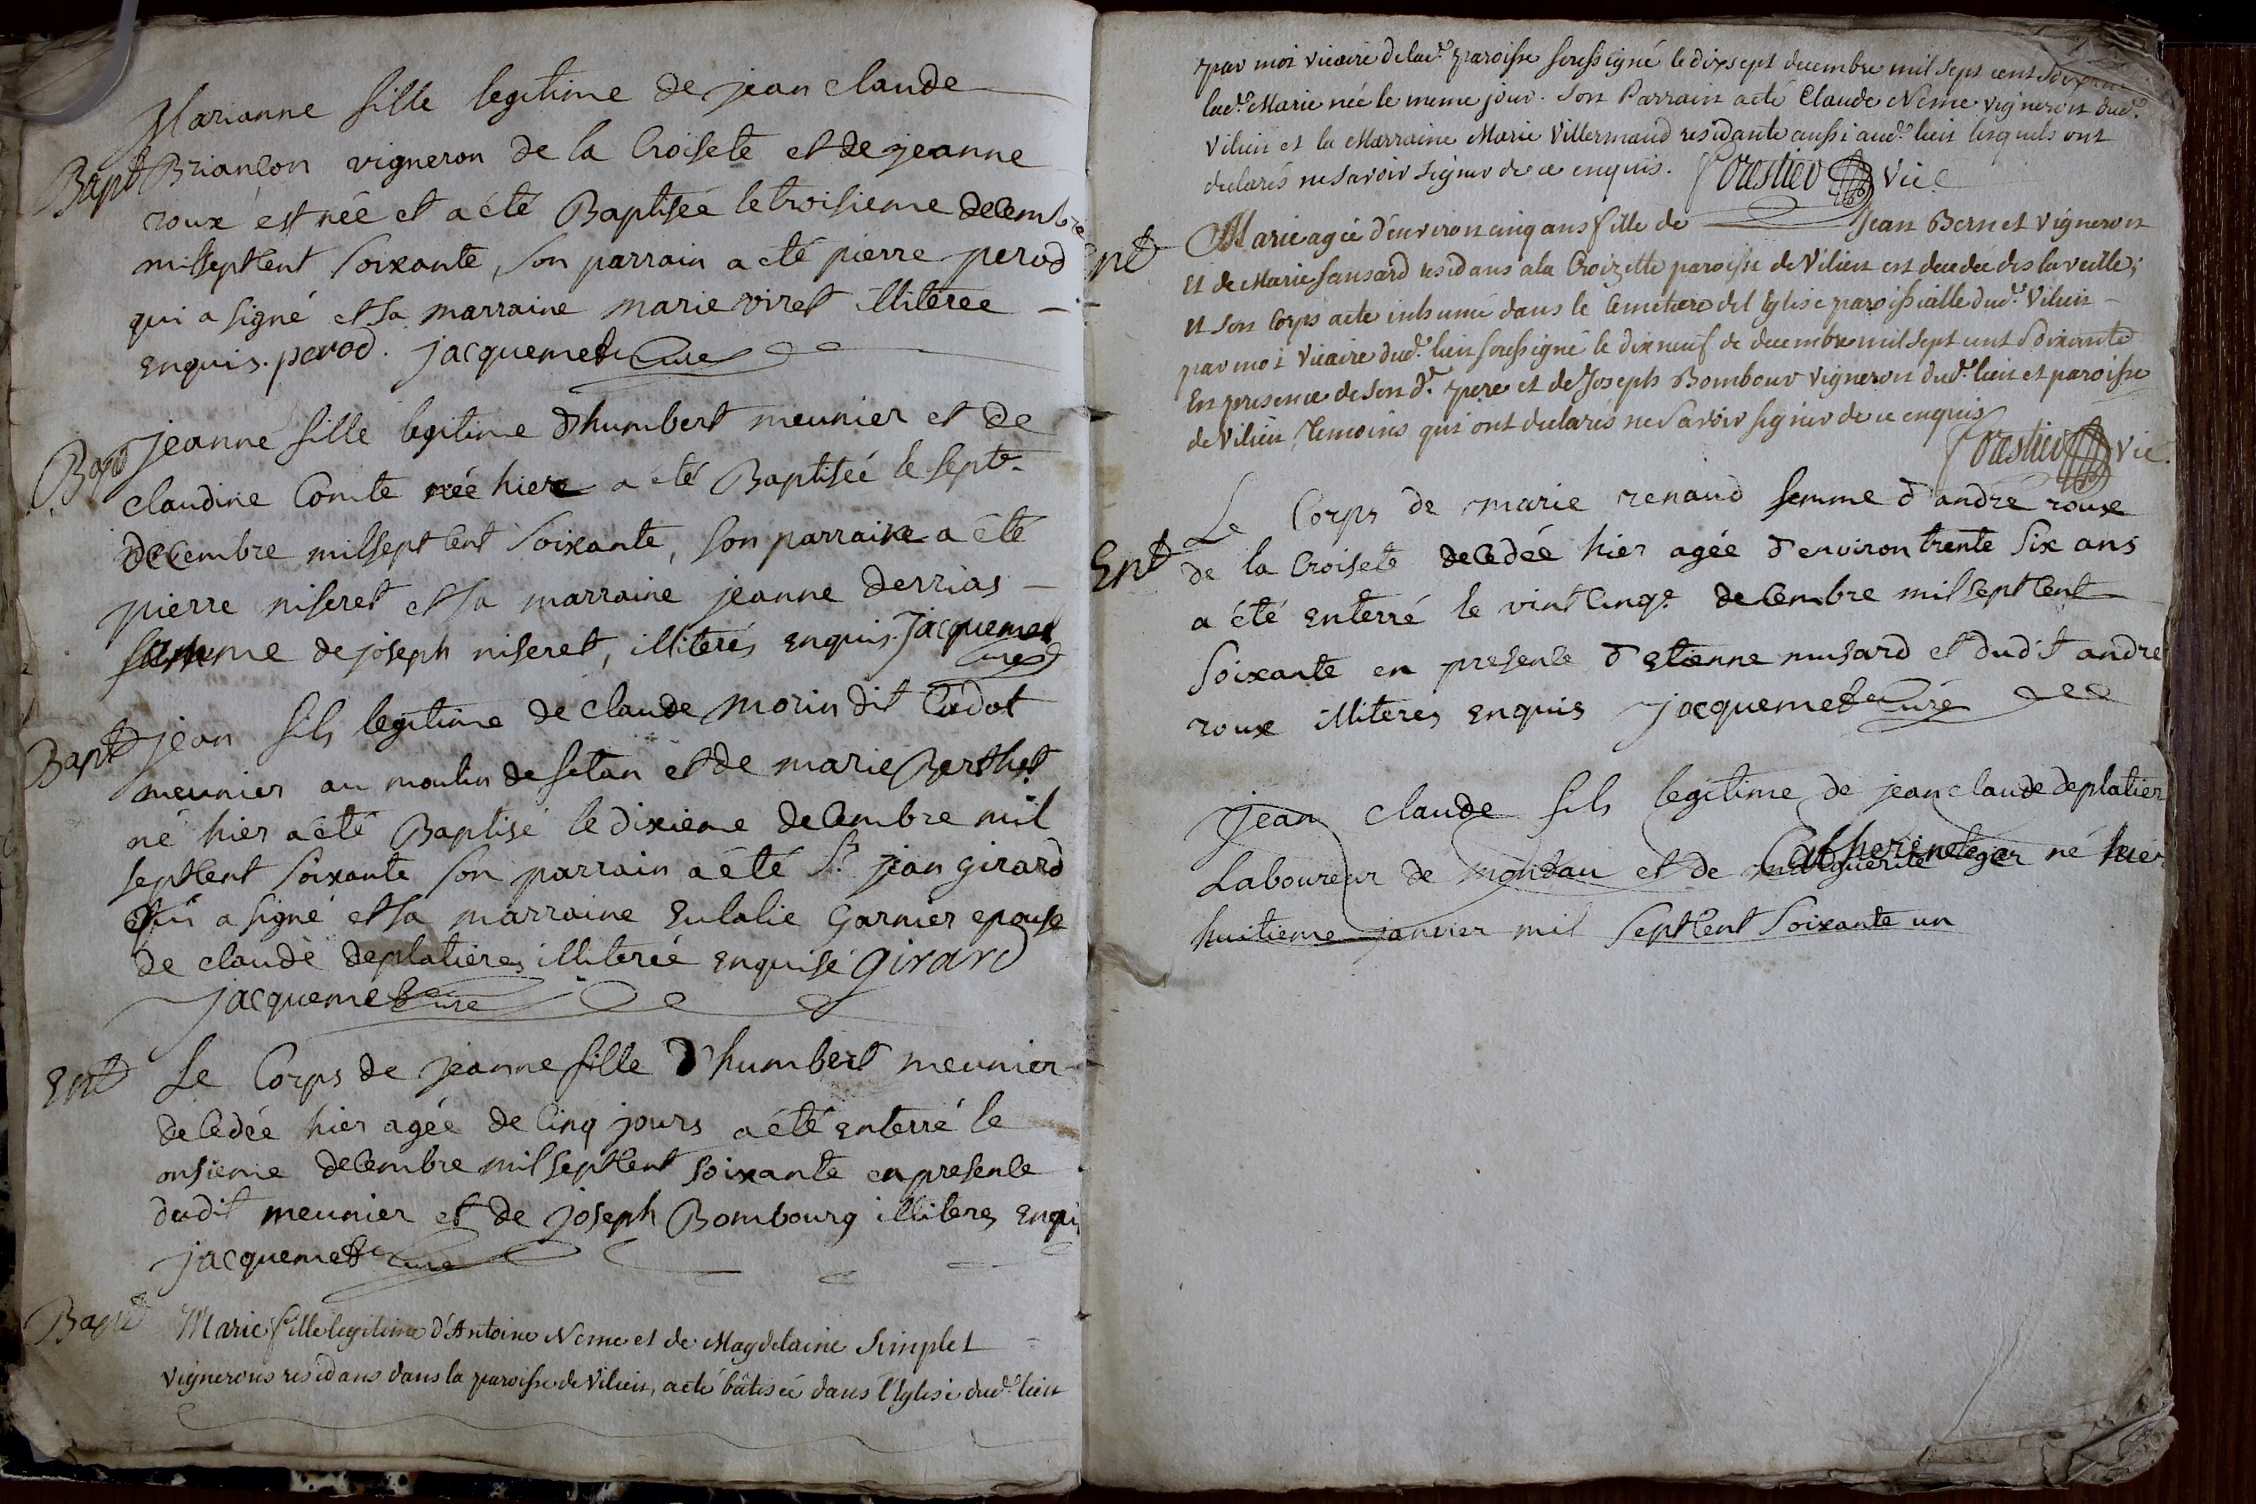 Marianne fille legitime de jean claude
Bapt Briancon vigneron de la Croisete et de jeanne
roux est née et a été Baptisée le troisieme decembre
mil sept cent soixante, son parrain a été pierre perod
qui a signé et sa marraine marie viret illiterée
enquis. perod. jacquemet Curé
Bapt jeanne fille legitime d'humbert meunier et de
claudine Comte née hier a été Baptisée le sept
decembre mil sept cent soixante, son parrain a été
pierre niseret et sa marraine jeanne derrias
femme de joseph niseret, illiterés enquis. Jacquemet
curé
Bapt jean fils legitime de claude morin dit Cadot
meunier au moulin de setan et de marie Berthet
né hier a été Baptisé le dixieme decembre mil
sept cent soixante son parrain a été Sr jean girard
qui a signé et sa marraine Eulalie Garnier epouse
de claude deplatieres illiterée enquise girard
jacquemet Curé
Ent Le Corps de jeanne fille d'humbert meunier
decedée hier agée de Cinq jours a été enterré le
onsieme decembre mil sept cent soixante en presence
dudit meunier et de joseph Bombourg illiteres enquis
jacquemet curé
Bapt Marie fille legitime d'Antoine Neme et de Magdelaine Simplet
vignerons residans dans la paroisse de Vilieu, a été bâtisée dans l'Eglise dud. lieu
par moi vicaire de lad. paroisse soussigné le dixsept decembre mil sept cent soixante
lad. Marie née le meme jour. Son Parrain a été Claude Neme vigneron dud.
Vilieu et la Marraine Marie Villermaud residante aussi aud. lieu lesquels ont
declarés ne savoir signer de ce enquis. Forestier vic
Ent Marie agée d'environ cinq ans fille de Jean Bernet vigneron
et de Marie Sansard residans a la Croizette paroisse de Vilieu est decedée dès la veille;
et son Corps a eté inhumé dans le Cimetiere del Eglise paroissialle dud. Vilieu
par moi Vicaire dud. lieu soussigné le dix neuf de decembre mil sept cent soixante
En presence de son d. pere et de Joseph Bombour vigneron dud. lieu et paroisse
de Vilieu, temoins qui ont declarés ne Savoir signer de ce enquis
Forestier vic.
Le Corps de marie renaud femme d'andré roux
Ent de la Croisete decedée hier agée d'environ trente six ans
a été enterré le vint cinq.e decembre mil sept cent
soixante en presence d'etienne musard et dudit andre
roux illiteres enquis jacquemet Curé
jean claude fils legitime de jean claude deplatier
Laboureur de mondau et de Catherine leger né hier
huitieme janvier mil sept cent soixante un